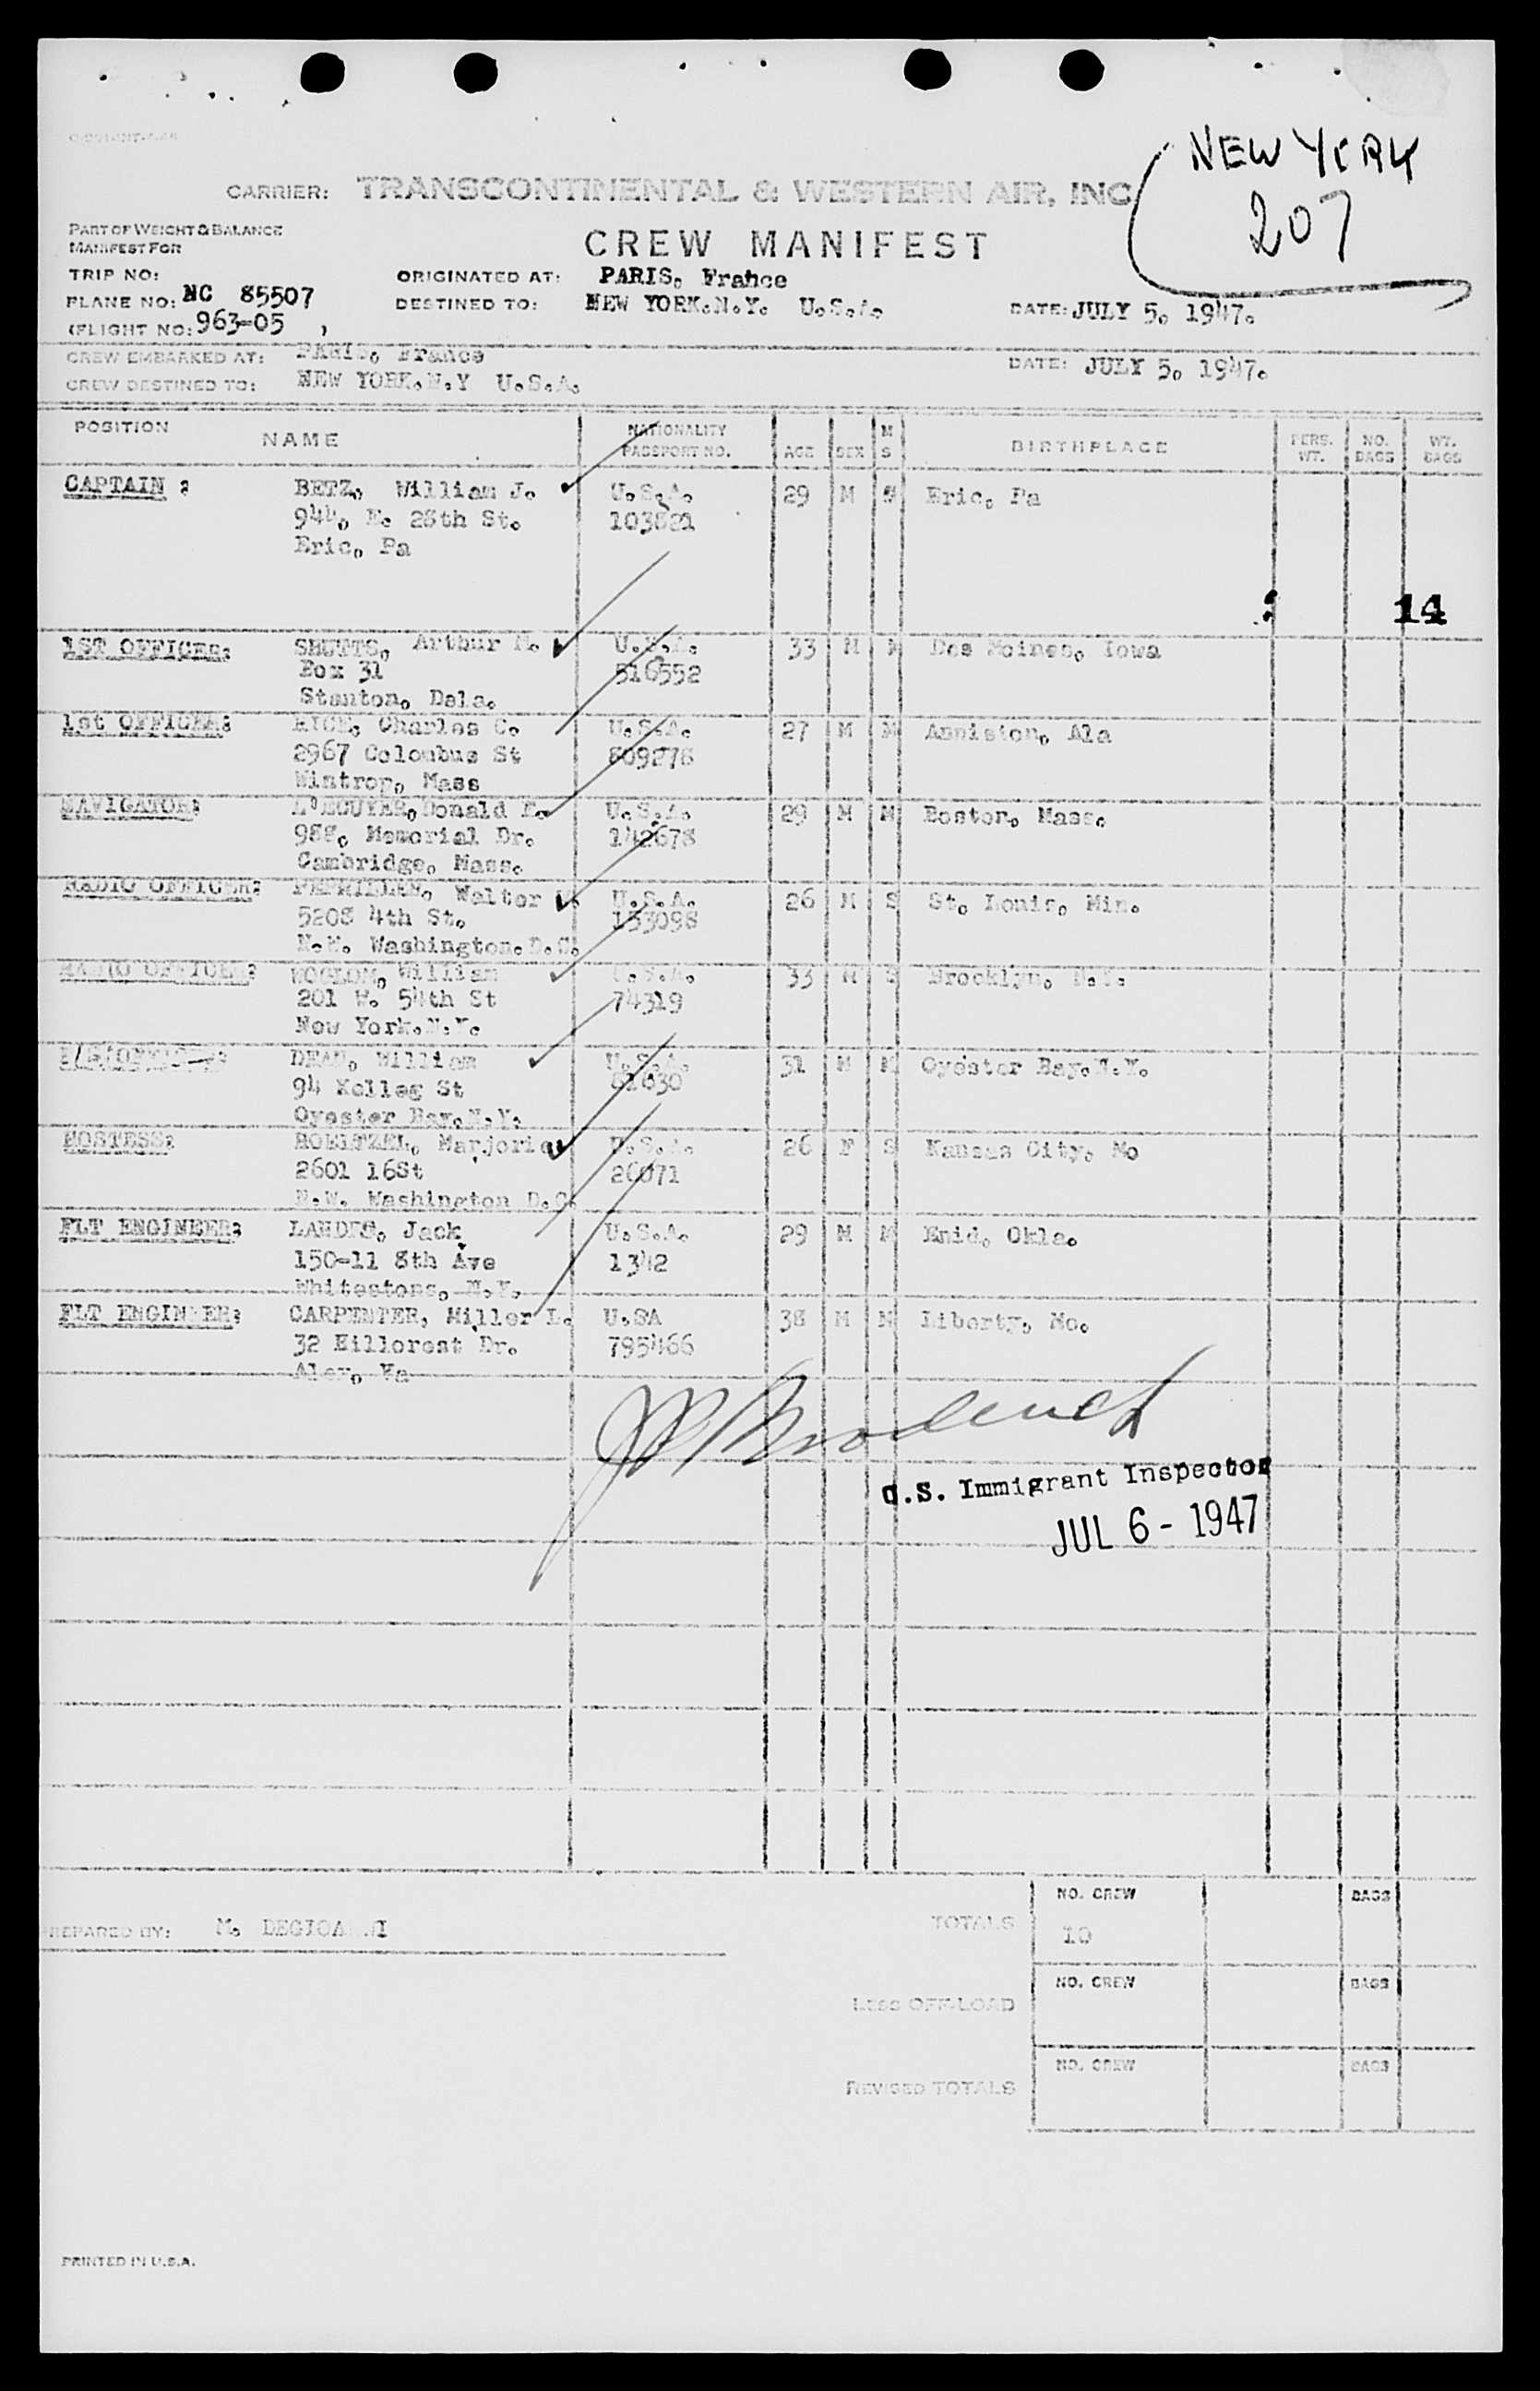 NEW YORK
207
CARRIER: TRANSCONTINENTAL & WESTERN AIR, INC
PART OF WEIGHT & BALANCE
MANIFEST FOR
CREW MANIFEST
TRIP NO: ORIGINATED AT: PARIS, France
PLANE NO: NC 85507 DESTINED TO: NEW YORK.N.Y. U.S.A. DATE: JULY 5, 1947.
(FLIGHT NO: 963-05 ,
CREW EMBARKED AT: PARIS, France DATE: JULY 5, 1947.
CREW DESTINED TO: NEW YORK.N.Y U.S.A.
POSITION NAME NATIONALITY PASSPORT NO. AGE SEX M S BIRTHPLACE PERS. WT. NO. BAGS WT. BAGS
CAPTAIN : BETZ, William J. U.S.A. 29 M Eric, Pa
944, E. 28th St. 103821
Eric, Pa
14
1ST OFFICER: SHUTTS, Arthur M. U.S.A. 33 M M Des Moines, Iowa
Box 31 516552
Stanton, Dela.
1st OFFICER: RICE, Charles C. U.S.A. 27 M M Anniston, Ala
2967 Colombus St 809278
Wintrop, Mass
NAVIGATOR: L'ECUYER, Donald E. U.S.A. 29 M M Boston, Mass.
988, Memorial Dr. 142678
Cambridge, Mass.
RADIO OFFICER: Walter U.S.A. 26 M S St. Louis, Min.
5208 4th St. 153098
N.W. Washington.D.C.
RADIO OFFICER: William U.S.A. 33 M S Brooklyn, N.Y.
201 W. 54th St 74319
New York.N.Y.
DEAN, William U.S.A. 31 M M Oyester Bay.N.Y.
94 Kolleg St 61630
Oyester Bay.N.Y.
HOSTESS: Marjorie U.S.A. 26 F S Kansas City, Mo
2601 16St 26071
N.W. Washington D.C.
FLT ENGINEER: LANDES, Jack U.S.A. 29 M M Enid, Okla.
150-11 8th Ave 1342
Whitestone, N.Y.
FLT ENGINEER: CARPENTER, Miller L. U.SA 38 M M Liberty, Mo.
32 Hillcrest Dr. 795466
Alex, Va
U.S. Immigrant Inspector
JUL 6 - 1947
PREPARED BY: M. TOTALS NO. CREW BAGS
10
LESS OFF-LOAD NO. CREW BAGS
REVISED TOTALS NO. CREW BAGS
PRINTED IN U.S.A.